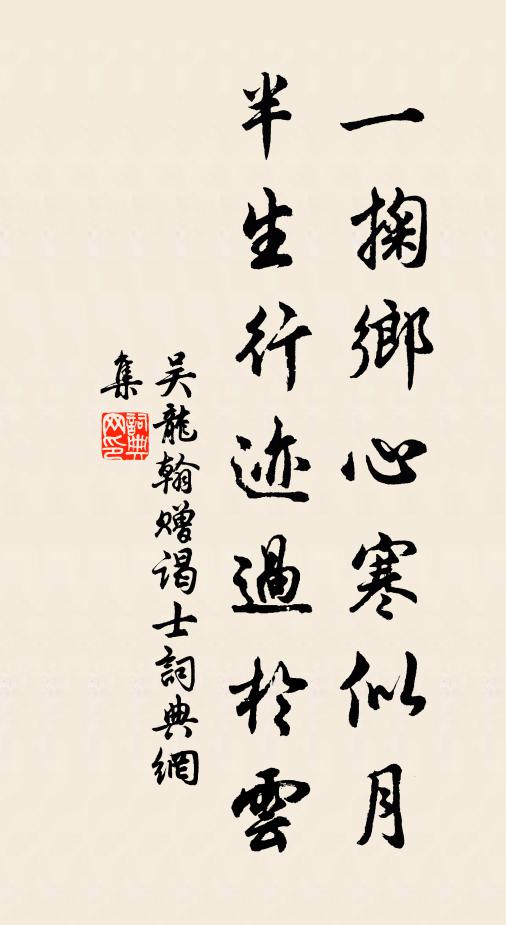 一掬鄉心寒似月
半生行迹過於雲
吴龍翰贈謁士詞典網
集
詞典
网印